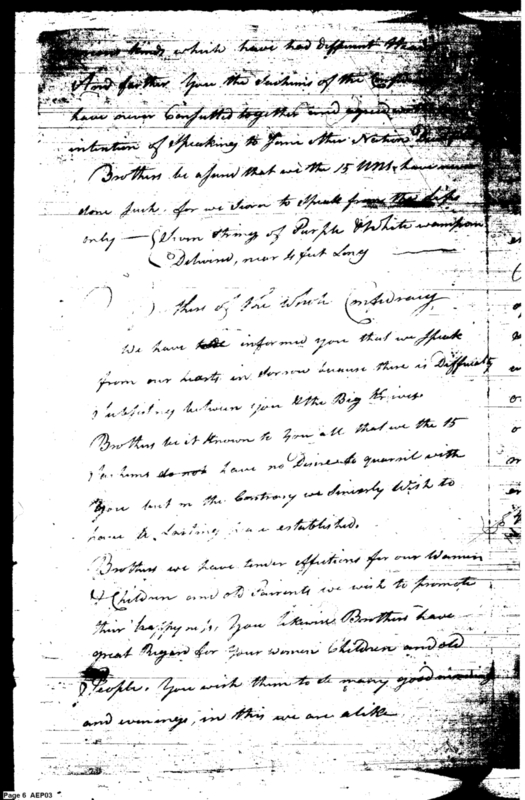 which have had Different
And farther You the Sachims of the
have never Consulted together and agreed
intention of Speaking to Some other Nation
Brothers be asured that we the 15 UNS, have
done Such. for we Scorn to Speak from the Lip
only — Seven Strings of Purple & White wampon
Deliverd, near 4 feet Long
thers of the Confuracy
We have informed you that we Speak
from our hearts in Sorrow because there is Difficulty
Subsisting between you & the Big Knives
Brothers be it Known to You all that we the 15
Sachims do not have no Desire to quarril with
You but on the Contrary we Sincerly Wish to
have a Lasting established.
Brothers we have tender affections for our Women
& Children and old Parrents we wish to promote
their happyness, You likewise Brothers have
great Regard for Your women Children and old
People. You wish them to de many good
and evenings, in this we are alike
Page 6 AEP03